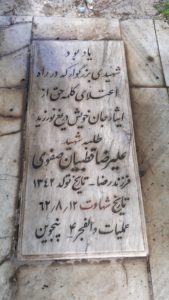 یاد بود
شهیدی بزرگوار که در راه
اعتلای کلمه حق از
ایثار جان خویش دریغ نورزید
طلبه شهید
علیرضا قطبیان صفوی
فرزند رضا - تاریخ تولد ۱۳۴۲
تاریخ شهادت ۶۲٫۸٫۱۲
عملیات والفجر ۴ پنجوین